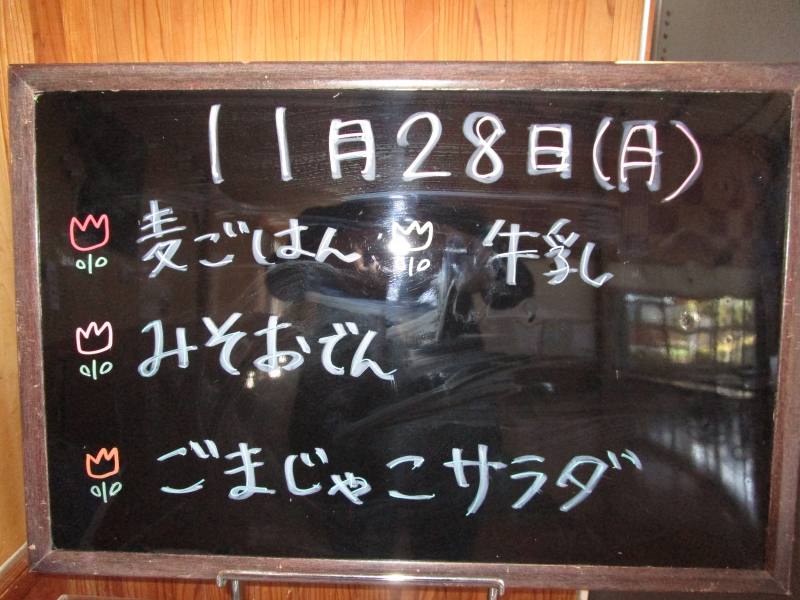 11月28日(月)
麦ごはん 牛乳
みそおでん
ごまじゃこサラダ